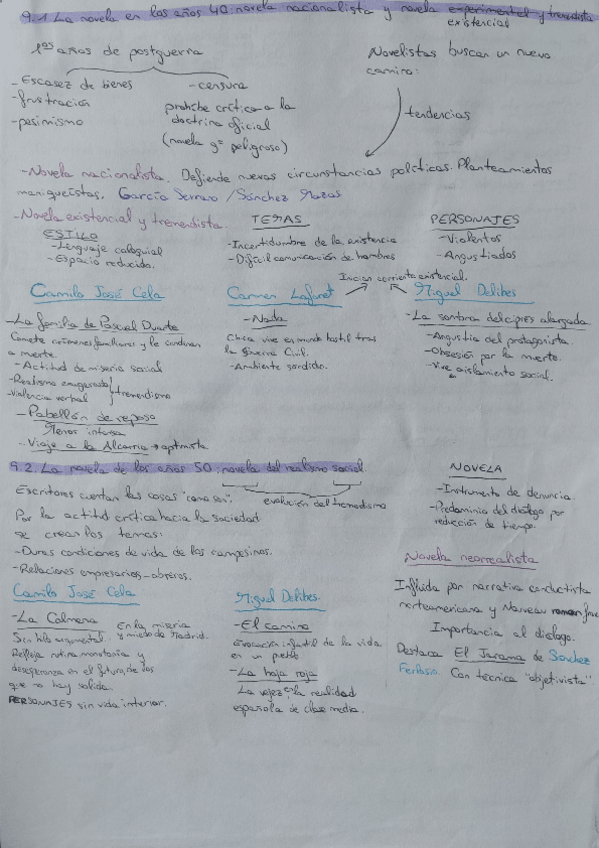 9.1. La novela en los años 40: novela nacionalista y novela experimental y tremendista
existencial
1ros años de postguerra
- Escasez de bienes
- frustración
- pesimismo
- censura
prohibe crítica a la
doctrina oficial
(novela gº peligroso)
Novelistas buscan un nuevo
camino:
tendencias
- Novela nacionalista. Defiende nuevas circunstancias políticas. Planteamientos
maniqueístas. García Serrano / Sánchez Mazas
- Novela existencial y tremendista.
ESTILO
- Lenguaje coloquial
- Espacio reducido.
TEMAS
- Incertidumbre de la existencia
- Difícil comunicación de hombres
PERSONAJES
- Violentos
- Angustiados
Inician corriente existencial.
Camilo José Cela
- La familia de Pascual Duarte
Comete crímenes familiares y le condenan
a muerte.
- Actitud de miseria social
- Realismo exagerado
- Violencia verbal
tremendismo
- Pabellón de reposo
Menor intensa
- Viaje a la Alcarria → optimista
Carmen Laforet
- Nada
Chica vive en mundo hostil tras
la Guerra Civil.
- Ambiente sórdido.
Miguel Delibes
- La sombra del ciprés alargada.
- Angustia del protagonista.
- Obsesión por la muerte.
- Vive en aislamiento social.
9.2. La novela de los años 50: novela del realismo social
evolución del tremendismo
Escritores cuentan las cosas "como son".
Por la actitud crítica hacia la sociedad
se crean los temas:
- Duras condiciones de vida de los campesinos.
- Relaciones empresarios-obreros.
NOVELA
- Instrumento de denuncia.
- Predominio del diálogo por
reducción de tiempo.
Camilo José Cela
- La Colmena
En la miseria
y miedo de Madrid.
Sin hilo argumental
Refleja rutina monótona y
desesperanza en el futuro, de los
que no hay salida.
PERSONAJES sin vida interior.
Miguel Delibes.
- El camino
Evocación infantil de la vida
en un pueblo.
- La hoja roja
La vejez en la realidad
española de clase media.
Novela neorrealista
Influida por narrativa conductista
norteamericana y Nouveau roman
Importancia al diálogo.
Destaca El Jarama de Sánchez
Ferlosio. Con técnica "objetivista".